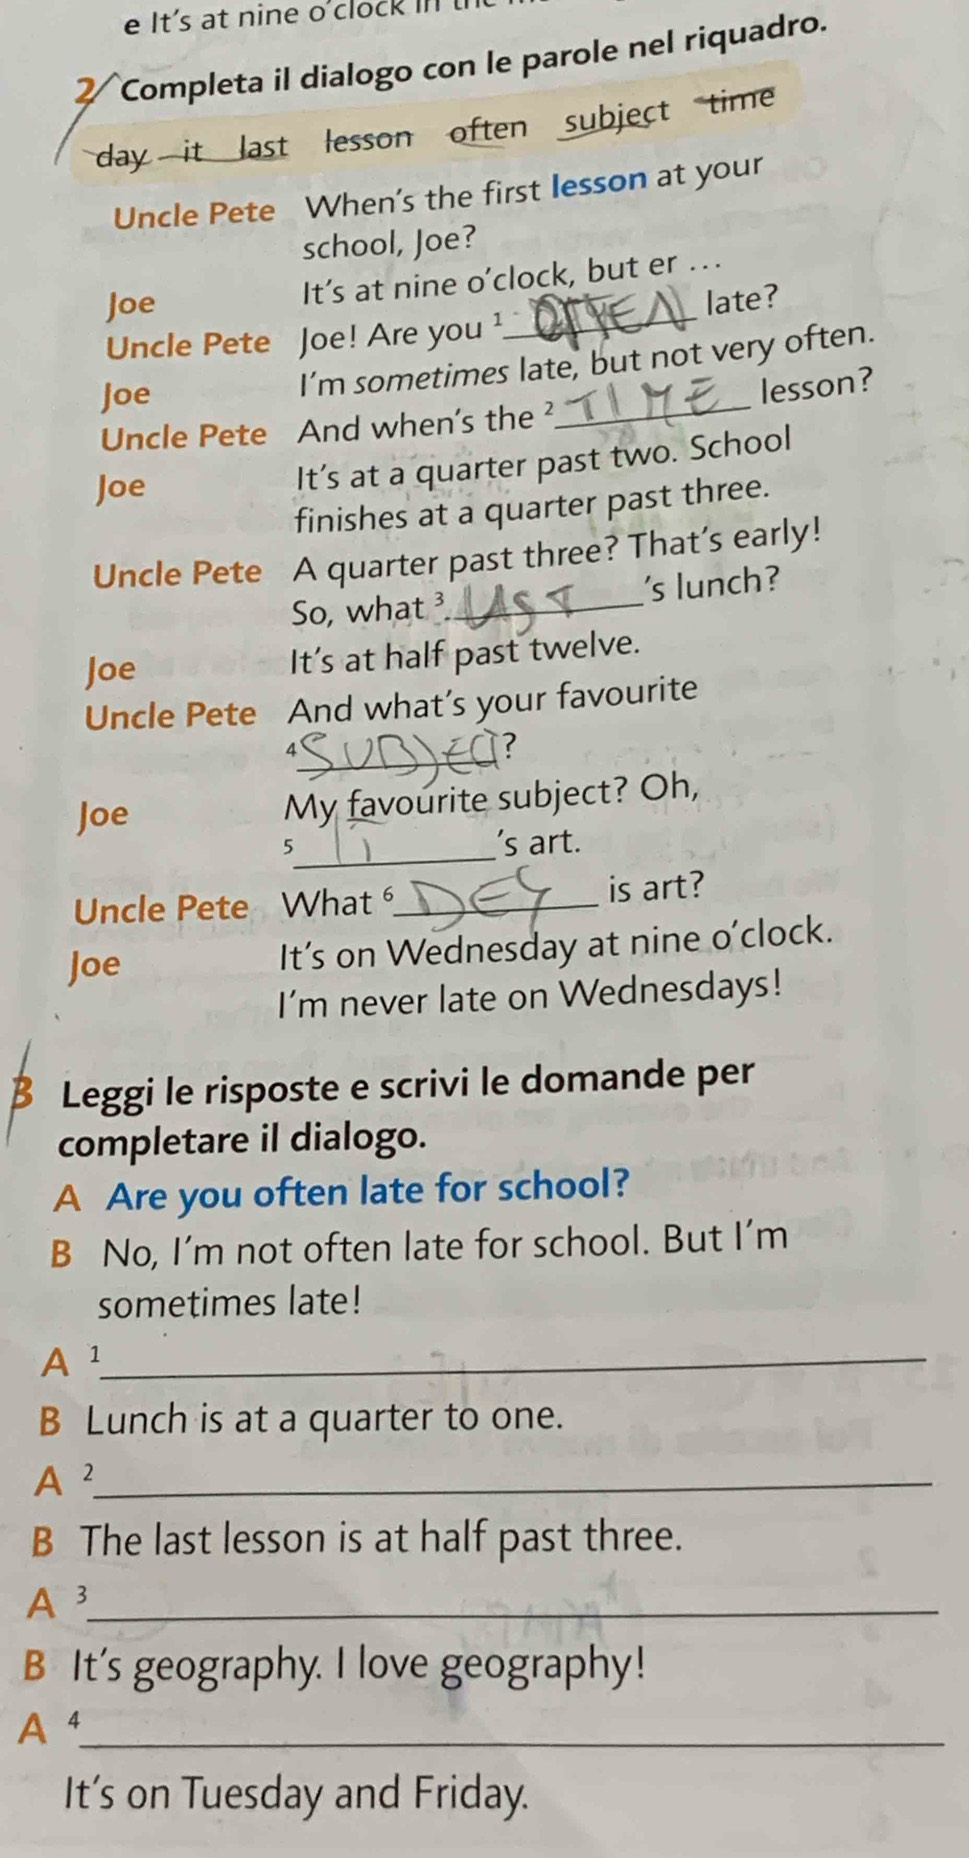 e It's at nine o'clock in
2 Completa il dialogo con le parole nel riquadro.
day it last lesson often subject time
Uncle Pete When's the first lesson at your
school, Joe?
Joe It's at nine o'clock, but er ...
Uncle Pete Joe! Are you ¹ OFTEN late?
Joe I'm sometimes late, but not very often.
Uncle Pete And when's the ² TIME lesson?
Joe It's at a quarter past two. School
finishes at a quarter past three.
Uncle Pete A quarter past three? That's early!
So, what ³ LAST 's lunch?
Joe It's at half past twelve.
Uncle Pete And what's your favourite
⁴ SUBJECT?
Joe My favourite subject? Oh,
⁵ 's art.
Uncle Pete What ⁶ DEY is art?
Joe It's on Wednesday at nine o'clock.
I'm never late on Wednesdays!
3 Leggi le risposte e scrivi le domande per
completare il dialogo.
A Are you often late for school?
B No, I'm not often late for school. But I'm
sometimes late!
A ¹
B Lunch is at a quarter to one.
A ²
B The last lesson is at half past three.
A ³
B It's geography. I love geography!
A ⁴
It's on Tuesday and Friday.